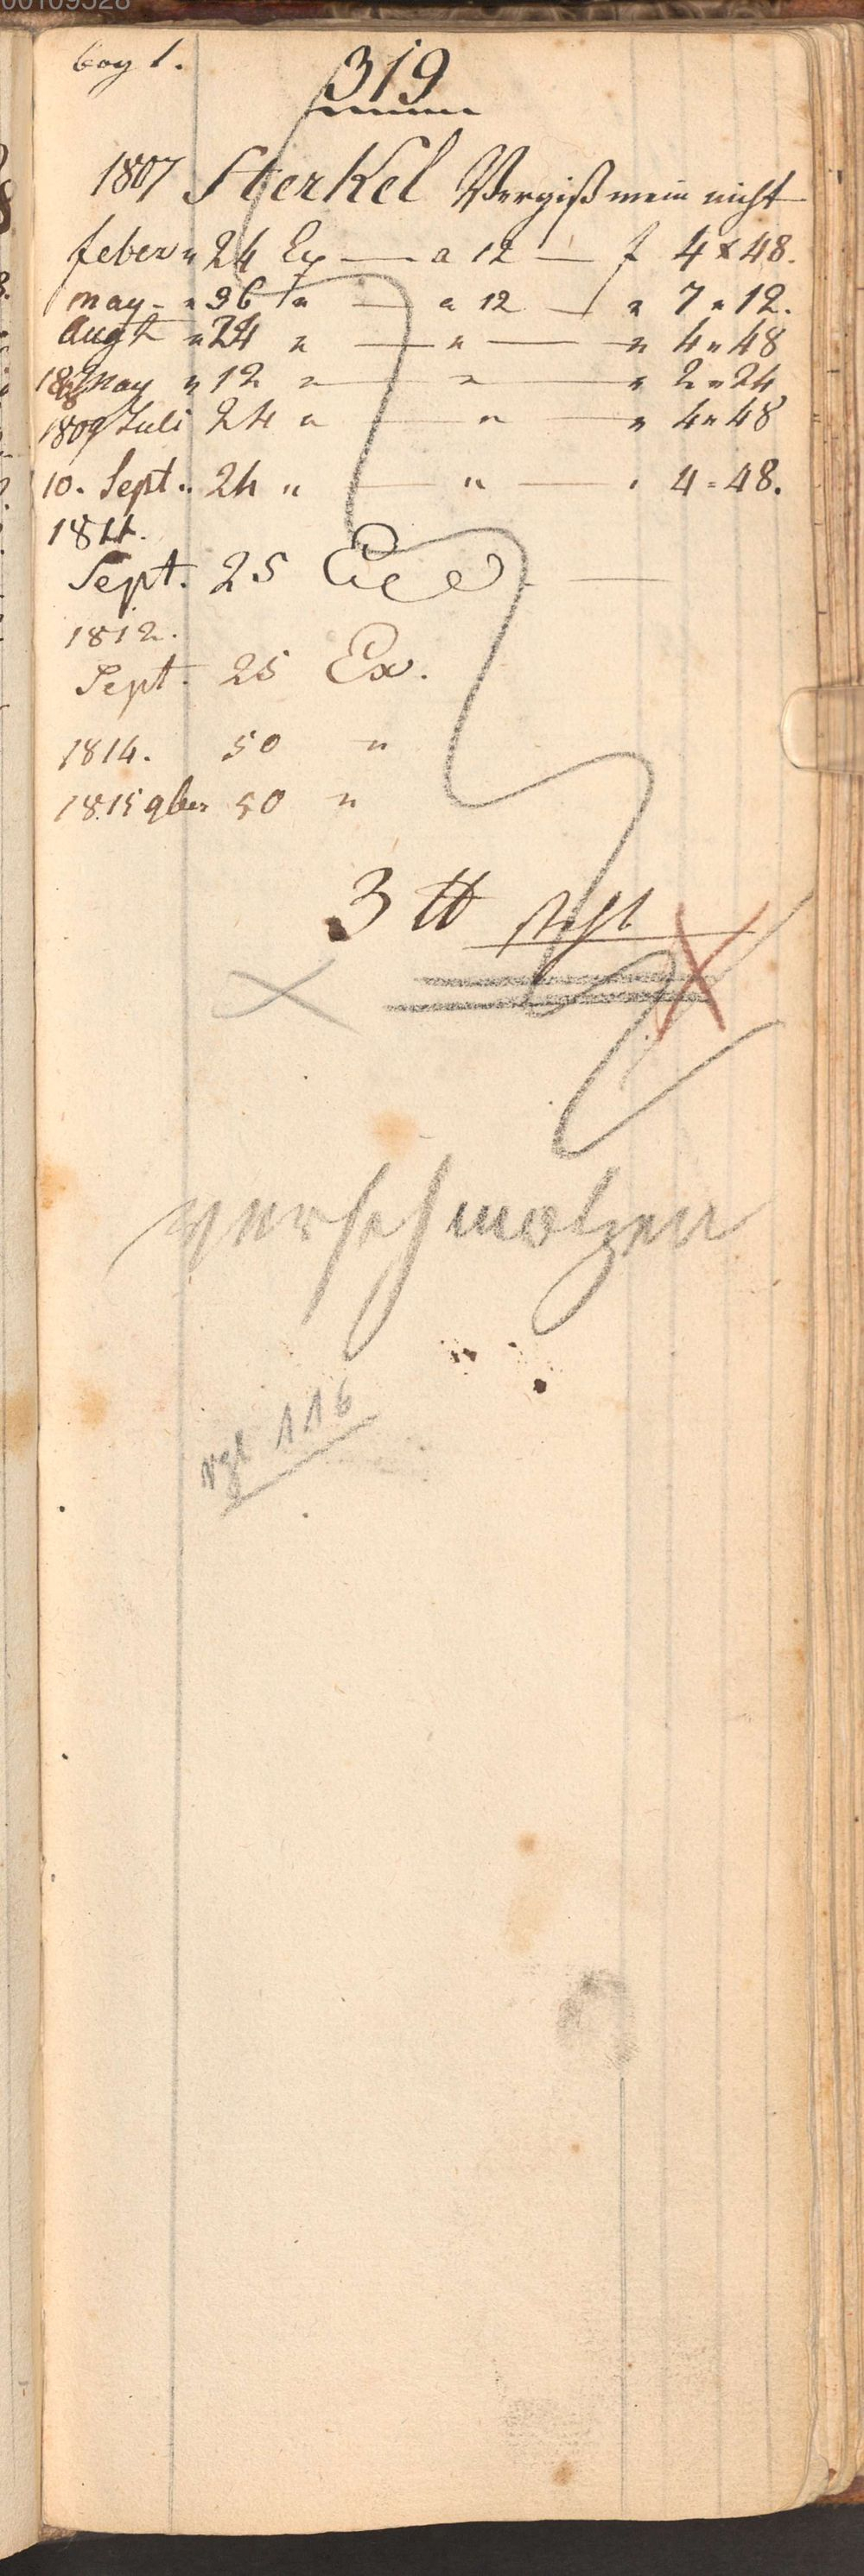 00109528
bog 1.
319
1807 Sterkel Vergiß mein nicht
feber " 24 Ex — a 12 — f 4 x 48.
may - " 36 " — a 12 — " 7 " 12.
Augt " 24 " — " — " 4 " 48
1808 May " 12 " — " — " 2 " 24
1809 Juli 24 " — " — " 4 " 48
10. Sept. 24 " — " — " 4 = 48.
1811.
Sept. 25 —
1812.
Sept. 25 Ex.
1814. 50 "
1815 9ber 50 "
3 ℔
verschmolzen
vgl 116